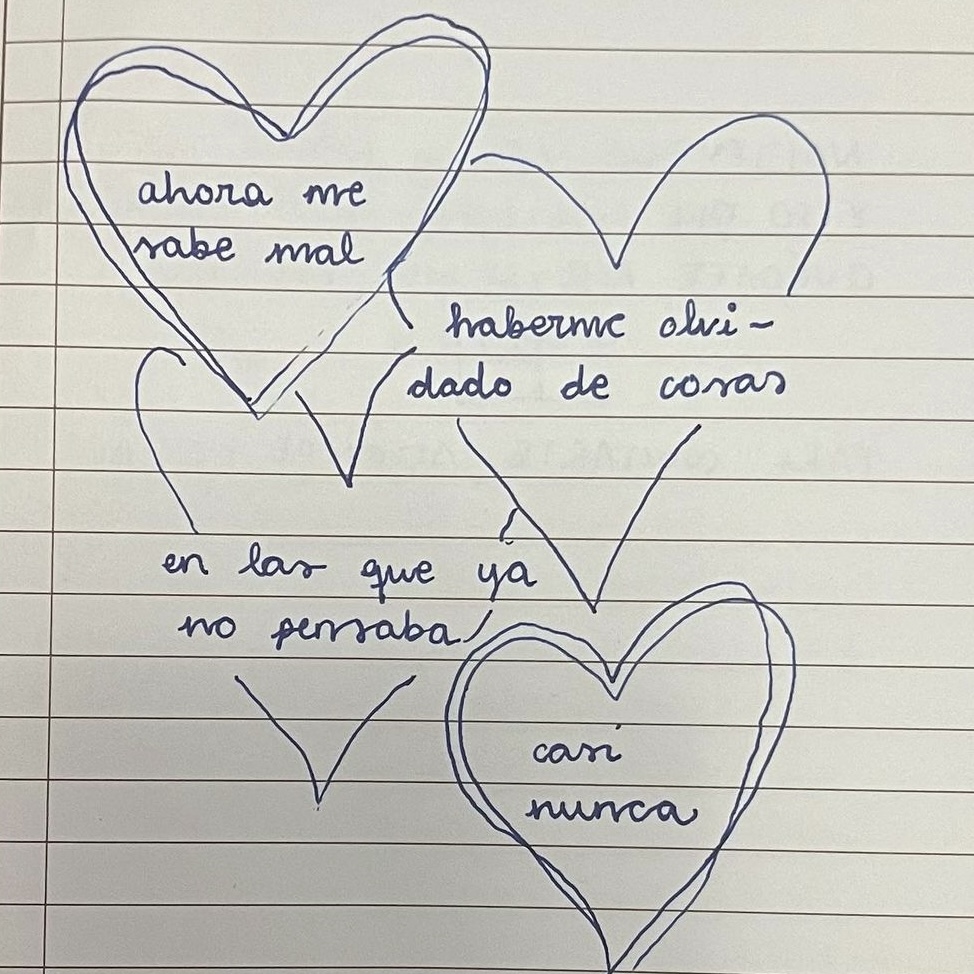 ahora me
sabe mal
haberme olvi-
dado de cosas
en las que ya
no pensaba
casi
nunca